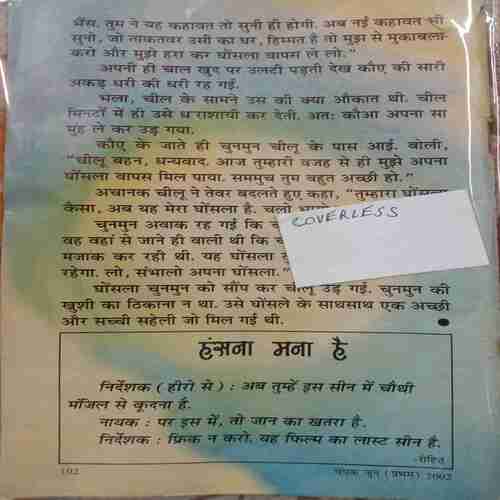 भैंस. तुम ने यह कहावत तो सुनी ही होगी. अब नई कहावत भी
सुनो, जो ताकतवर उसी का घर, हिम्मत है तो मुझ से मुकाबला
करो और मुझे हरा कर घोंसला वापस ले लो.”
अपनी ही चाल खुद पर उलटी पड़ती देख कौए की सारी
अकड़ धरी की धरी रह गई.
भला, चील के सामने उस की क्या औकात थी. चील
मिनटों में ही उसे धराशायी कर देती. अतः कौआ अपना सा
मुंह ले कर उड़ गया.
कौए के जाते ही चुनमुन चीलू के पास आई. बोली,
“चीलू बहन, धन्यवाद. आज तुम्हारी वजह से ही मुझे अपना
घोंसला वापस मिल पाया. सचमुच तुम बहुत अच्छी हो.”
अचानक चीलू ने तेवर बदलते हुए कहा, “तुम्हारा घोंसला
कैसा, अब यह मेरा घोंसला है. चलो
चुनमुन अवाक रह गई कि
वह वहां से जाने ही वाली थी कि
मजाक कर रही थी. यह घोंसला
रहेगा. लो, संभालो अपना घोंसला.”
COVERLESS
घोंसला चुनमुन को सौंप कर चीलू उड़ गई. चुनमुन की
खुशी का ठिकाना न था. उसे घोंसले के साथसाथ एक अच्छी
और सच्ची सहेली जो मिल गई थी.
हंसना मना है
निर्देशक (हीरो से) : अब तुम्हें इस सीन में चौथी
मंजिल से कूदना है.
नायक : पर इस में, तो जान का खतरा है.
निर्देशक : फ्रिक न करो, यह फिल्म का लास्ट सीन है.
-रोहित
102 चंपक जून (प्रथम) 2002